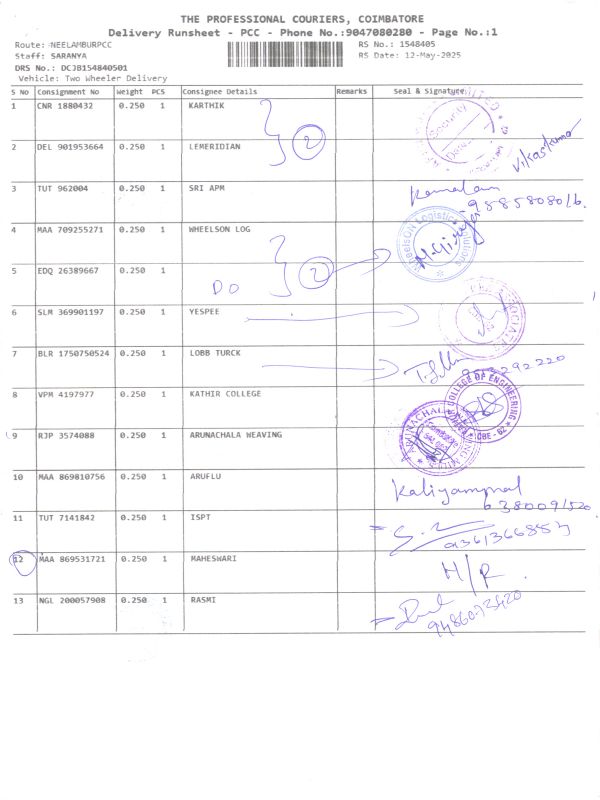 THE PROFESSIONAL COURIERS, COIMBATORE
Delivery Runsheet - PCC - Phone No.:9047080280 - Page No.:1
Route: NEELAMBURPCC RS No.: 1548405
Staff: SARANYA RS Date: 12-May-2025
DRS No.: DCJB154840501
Vehicle: Two Wheeler Delivery
S No Consignment No Weight PCS Consignee Details Remarks Seal & Signature
1 CNR 1880432 0.250 1 KARTHIK
2
Security
2 DEL 901953664 0.250 1 LEMERIDIAN
Vikaskumar
3 TUT 962004 0.250 1 SRI APM
Kamalam
4 MAA 709255271 0.250 1 WHEELSON LOG
WheelsON Logistics Solutions
5 EDQ 26389667 0.250 1
DO
2
6 SLM 369901197 0.250 1 YESPEE
7 BLR 1750750524 0.250 1 LOBB TURCK
292220
8 VPM 4197977 0.250 1 KATHIR COLLEGE
COLLEGE OF ENGINEERING
CBE - 62
9 RJP 3574088 0.250 1 ARUNACHALA WEAVING
ARUNACHALA
Coimbatore
10 MAA 869810756 0.250 1 ARUFLU
Kaliyammal
6380091520
11 TUT 7141842 0.250 1 ISPT
9361366853
12 MAA 869531721 0.250 1 MAHESWARI
H/R
13 NGL 200057908 0.250 1 RASMI
9486073420